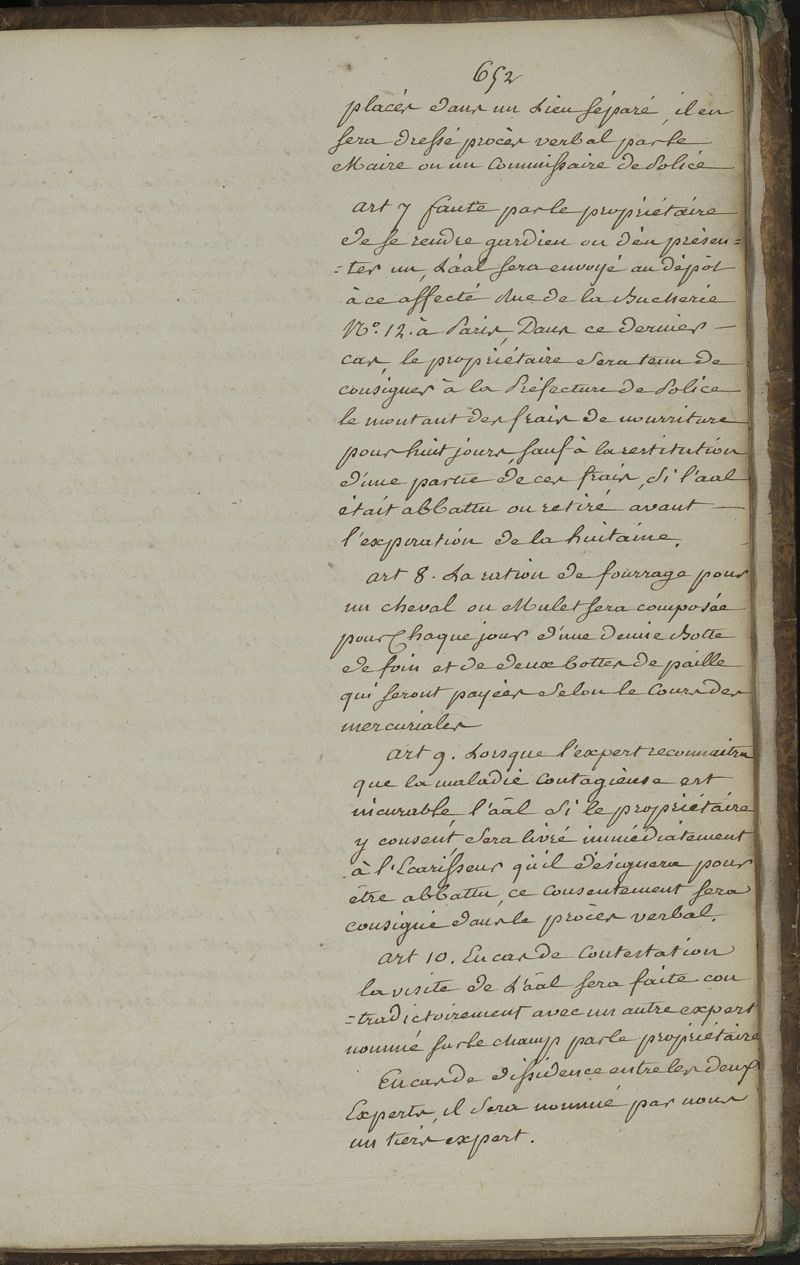 652
placés dans un Lieu séparé, il en
sera dressé procès verbal par le
Maire ou un Commissaire de Police
art 7 faute par le propriétaire
de se rendre gardien ou d'en présen=
=ter un, L'aal sera envoyé au dépôt
à ce affecté Rue de la Bucherie
N.º 12. à Paris, Dans ce dernier —
cas, le propriétaire sera tenu de
consigner à la Préfecture de Police
le montant des frais de nourriture
pour huit jours sauf à la restitution
d'une partie de ces frais, si l'aal
était abbattu ou retiré avant —
l'expiration de la huitaine.
art 8. La ration de fourrage pour
un cheval ou Mulet sera composée
pour Chaque jour d'une Demie Botte
de foin et de deux bottes de paille
qui seront payées selon le Cours des
mercuriales
art 9. Lorsque l'expert reconnaitra
que la maladie Contagieuse est
incurable, l'aâl si le propriétaire
y consent, sera livré immédiatement
à l'Ecarisseur qu'il désignera pour
être abbattu, ce Consentement sera
consigné dans le procès verbal.
art 10. En cas de Contestation
la visite de L'aâl sera faite con
=tradictoirement avec un autre expert
nommé sur le champ par le propriétaire
En cas de dissidence entre les deux
Experts, il sera nommé par nous
un tiers expert.